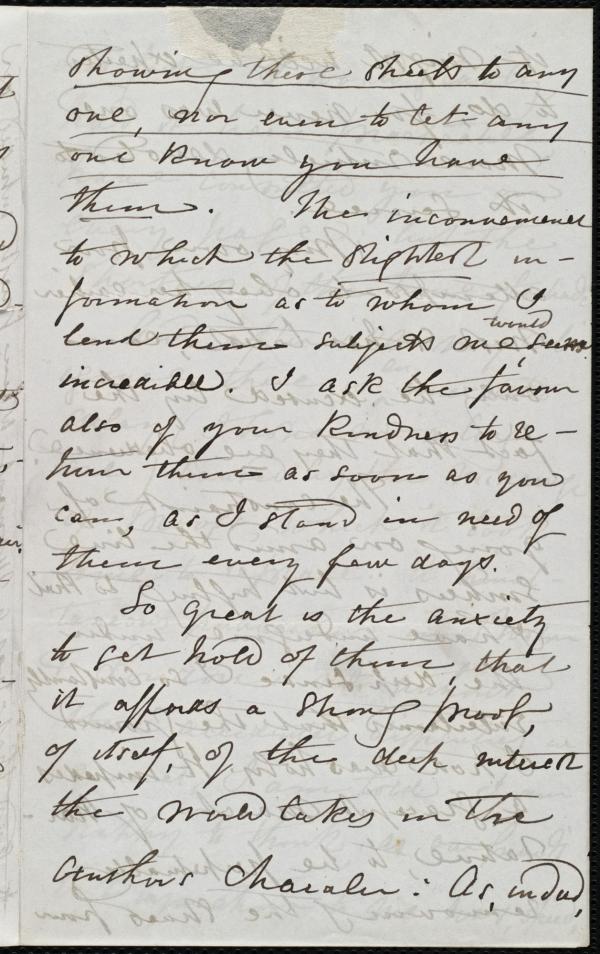 showing these sheets to any
one, nor even to let any
one know you have
them. The inconvenience
to which the slightest in-
formation as to whom I
lend them subjects me, would seem
incredible. I ask the favour
also of your kindness to re-
turn them as soon as you
can, as I stand in need of
them every few days.
So great is the anxiety
to get hold of them, that
it affords a strong proof,
of itself, of the deep interest
the world takes in the
Authors character: As, indeed,